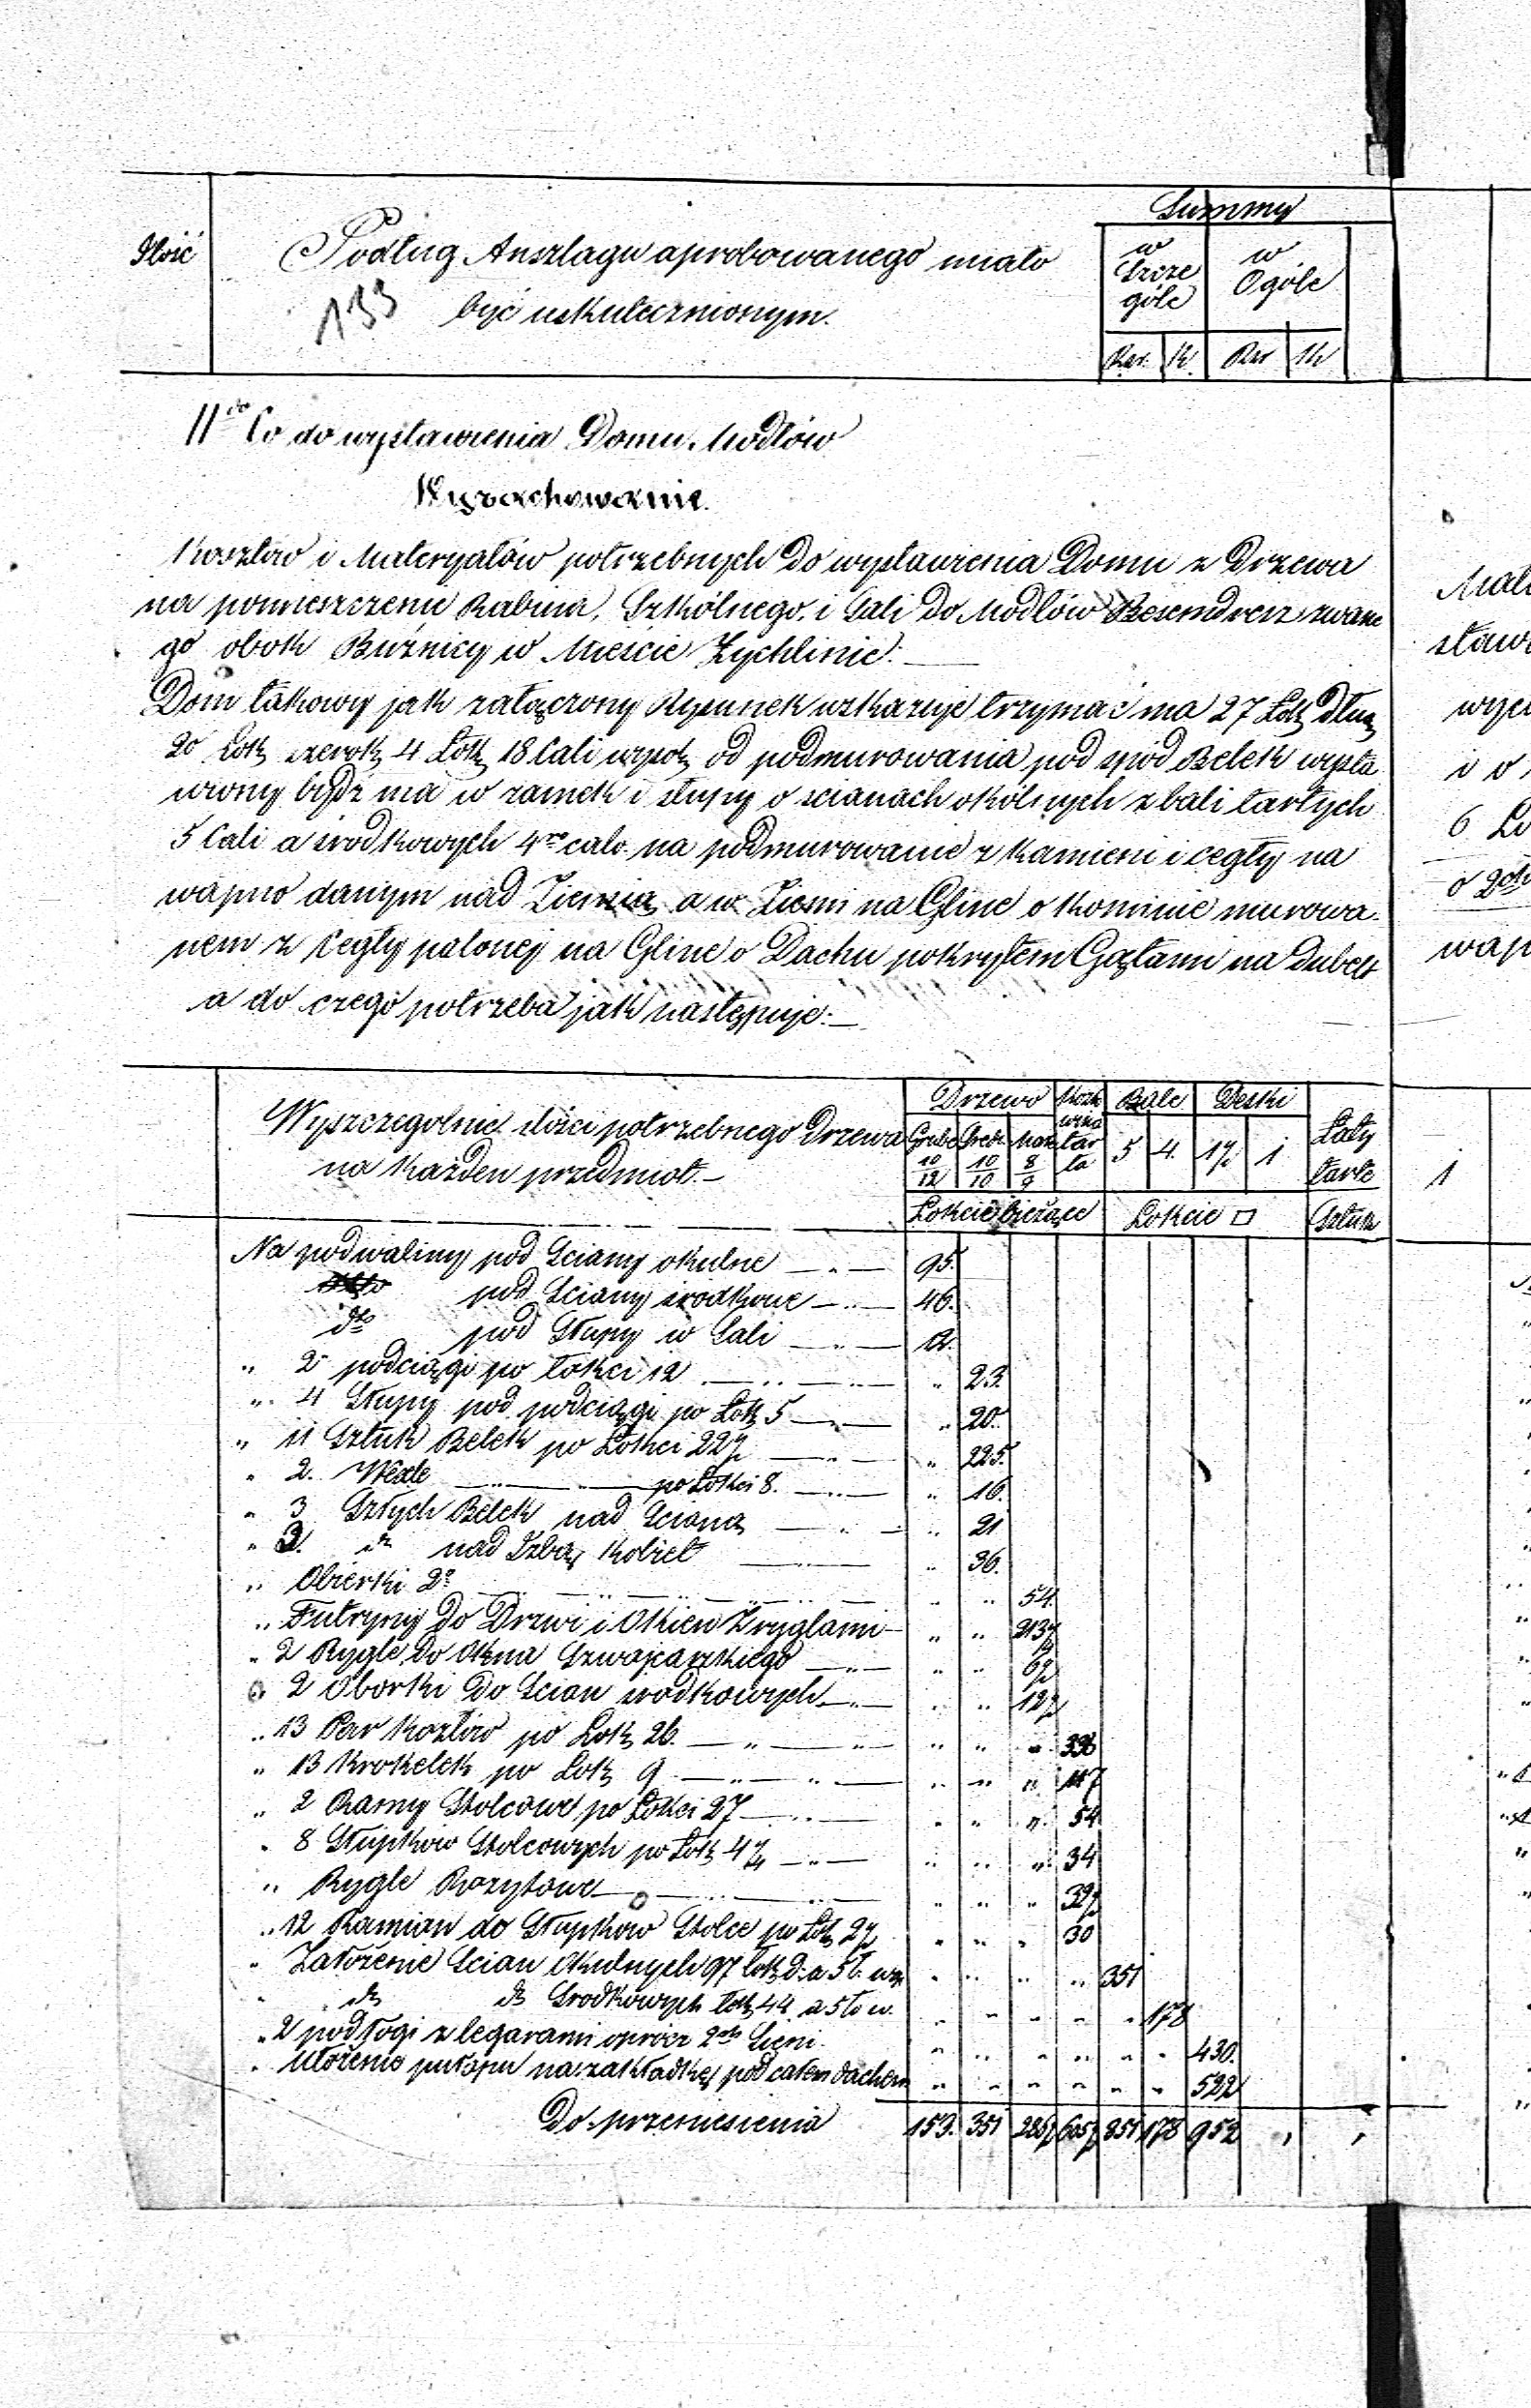 Summy
Ilość
Podług Anszlagu aprobowanego miało
być uskutecznionym.
133
w Szcze góle
w Ogóle
Rsr. K. Rsr K
II do Co do wystawienia Domu Modłów
Wyrachowanie.
Kosztów i Materyałów potrzebnych do wystawienia Domu z Drzewa
na pomieszczenie Rabina, Szkólnego, i Sali do Modłów zwane
go obok Bużnicy w Mieście Żychlinie.
Dom takowy jak załączony Rysunek wskazuje trzymać ma 27 Łok dług
20 Łok szerok 4 Łok 18 Cali wysok od podmurowania pod spód Belek wysta
wiony bydź ma w zamek i słupy o scianach okólnych z bali tartych
5 Cali a srodkowych 4ro calo. na podmurowanie z kamieni i cegły na
wapno danym nad Ziemią a w Ziemi na Glinę o kominie murowa
nem z Cegły palonej na Glinę o Dachu pokrytem Gątami na dubelt
a do czego potrzeba jak następuje:
Wyszczegolnie ilości potrzebnego Drzewa
na każden przedmiot.
Drzewo Bale Deski Łaty
tarte
10/12 10/10 8/9 tar ta 5 4. 1½ 1
Łokcie bieżące Łokcie □ Sztuk
Na podwaliny pod Sciany okulne 95.
pod Sciany srodkowe 46.
dto pod Słupy w Sali 12.
" 2 podciągi po łokci 12 " 23.
" 4 Słupy pod podciągi po Łok 5 " 20.
" 11 Sztuk Belek po Łokci 22½ " 225.
" 2. Wexle po Łokci 8. " 16.
" 3 Sztych Belek nad Scianą " 21
" 3. dto nad Izbą Kobiet " 36.
" Obierki 2e " " 54.
" Futryny do Drzwi i Okien Z ryglami " " 213½
" 2 Rygle do Okna Szwajcarskiego " " 6½
" 2 Oborki do Scian srodkowych " " 12½
" 13 Par Kozłów po Łok 26. " " " 338
" 13 Krokelek po Łok 9 " " " 117
" 2 Ramy Stolcowe po Łokci 27 " " " 54
" 8 Słupków Stolcowych po Łok 4¼ " " " 34
" Rygle Rozytowe " " " 32½
" 12 Ramian do Słupków Stolce po Łok 2½ " " " 30
" Założenie Scian Okulnych 97 łok d. a 5 ł. wys " " " " 351
" dto dto Srodkowych łok 44 a 5 ło w. " " " " " 178
" 2 podłogi z legarami oprócz 2ch Sieni. " " " " " " 430.
" Ułożenie pułapu na zakładkę pod całem dachem " " " " " " 522
Do przeniesienia 153. 351 286½ 605½ 351 178 952 , ,